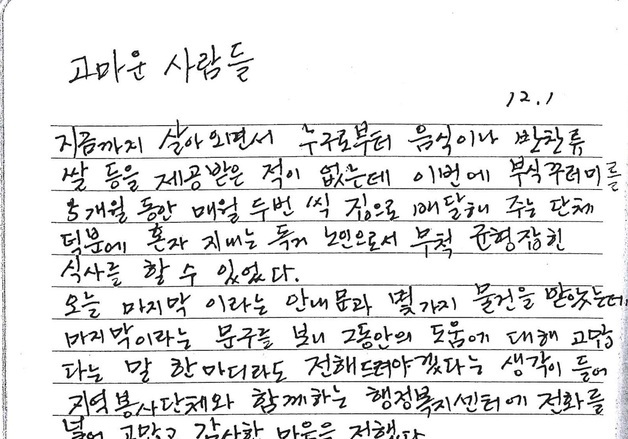 고마운 사람들
12.1
지금까지 살아오면서 누구로부터 음식이나 반찬류
쌀 등을 제공받은 적이 없는데 이번에 부식꾸러미를
5개월 동안 매월 두번 씩 집으로 배달해 주는 단체
덕분에 혼자 지내는 독거 노인으로서 무척 균형잡힌
식사를 할 수 있었다.
오늘 마지막 이라는 안내문과 몇가지 물건을 받았는데
마지막이라는 문구를 보니 그동안의 도움에 대해 고맙
다는 말 한마디라도 전해드려야겠다는 생각이 들어
지역봉사단체와 함께하는 행정복지센터에 전화를
넣어 고맙고 감사한 마음을 전했다